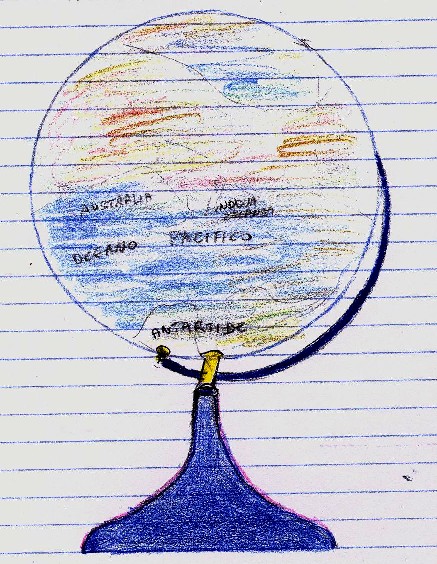 AUSTRALIA
NUOVA
OCEANO PACIFICO
ANTARTIDE